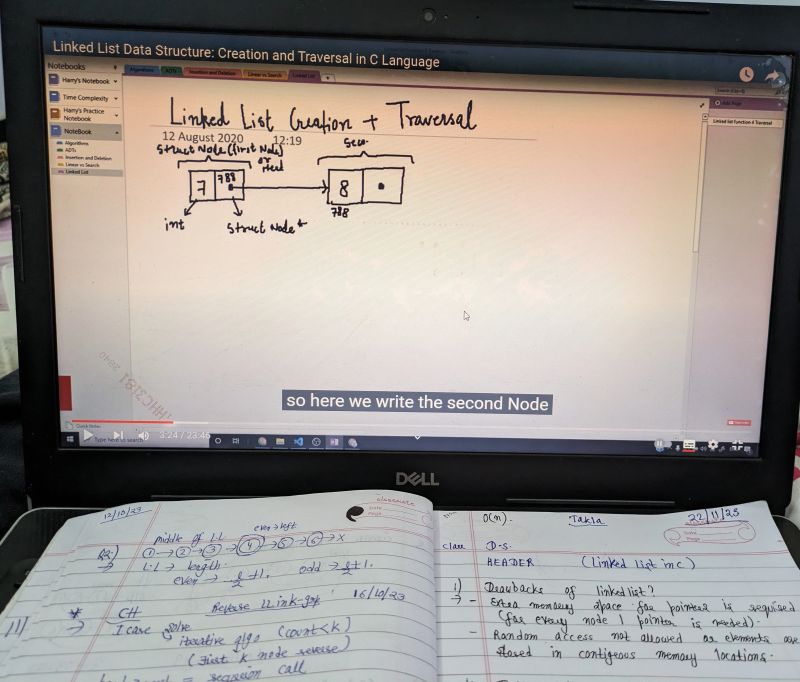 Linked List Data Structure: Creation and Traversal in C Language
Notebooks
Algorithms ADTs Insertion and Deletion Linear vs Search Linked List
Harry's Notebook
Time Complexity
Harry's Practice
Notebook
NoteBook
Algorithms
ADTs
Insertion and Deletion
Linear vs Search
Linked List
Add Page
Linked list function # Traversal
Linked List Creation + Traversal
12 August 2020 12:19
Struct Node (first Node)
or
Head
Seco-
7 788
8
788
int
Struct Node *
so here we write the second Node
Quick Notes
3:24 / 23:46
Type here to search
DELL
12/10/23
classmate
Date
Page
middle of LL
even → left
Q2)
1 → 2 → 3 → 4 → 5 → 6 → X
→ L.L → length.
even → +1, odd → +1.
Reverse 16/10/23
11)
* CH
→ I case solve
iterative algo (count<k)
(First k node reverse)
call
O(n).
Takla
22/11/23
Date
Page
class D-S.
HEADER (linked list in c)
1) Drawbacks of linked list?
→ - Extra memory space for pointer is required
(for every node 1 pointer is needed).
- Random access not allowed as elements are
stored in contigeous memory locations.